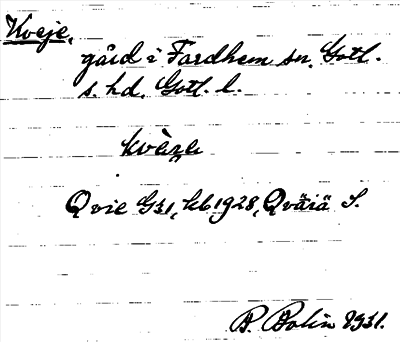 Kveje,
gård i Fardhem sn. Gotl.
s. hd. Gotl. l.
Qvie G31, kb 1928, Qväiä S.
B. Bolin 1931.